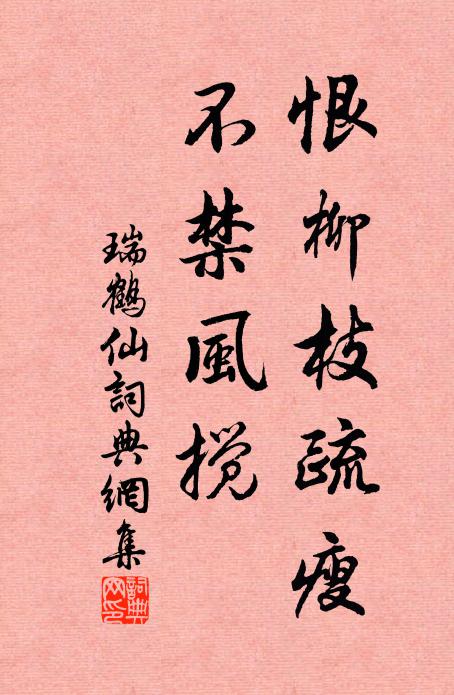 恨柳枝疏瘦
不禁風攪
瑞鶴仙詞典網集
詞典網印